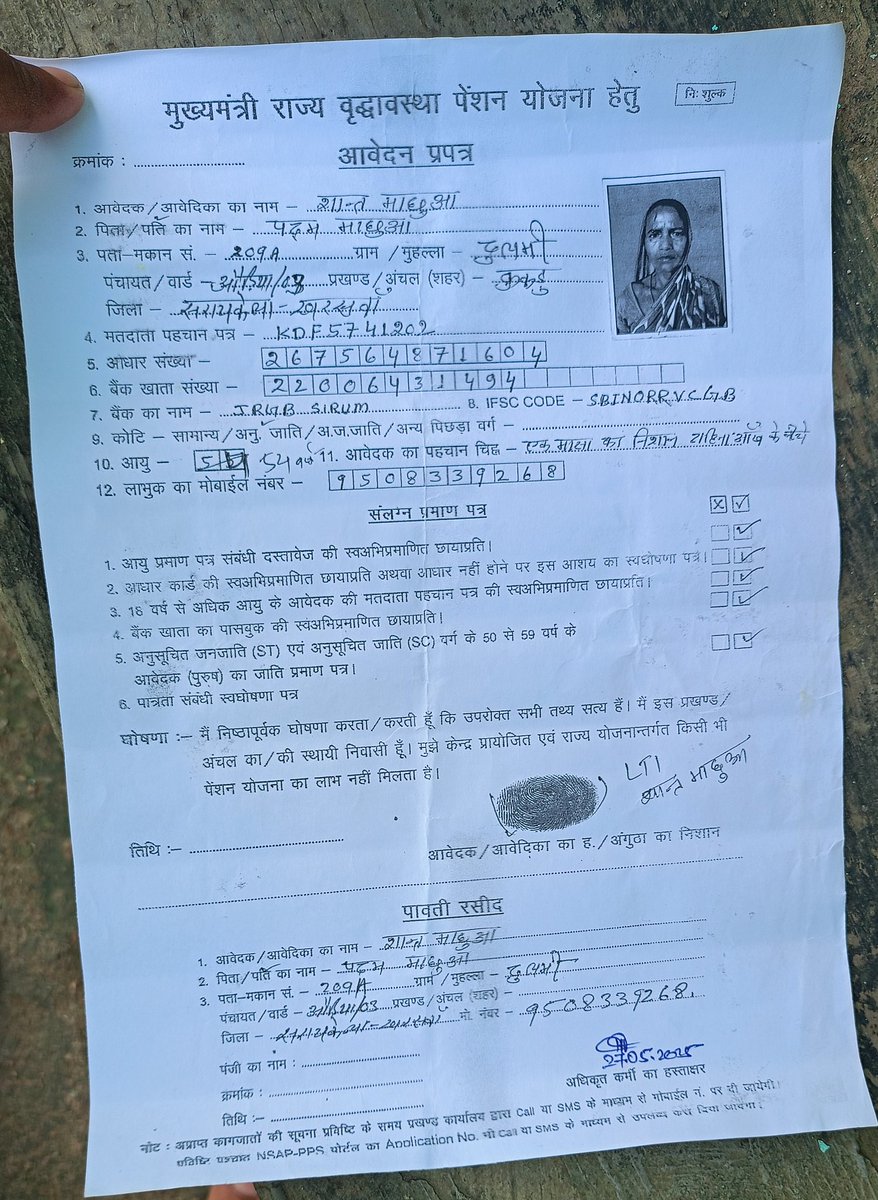 मुख्यमंत्री राज्य वृद्धावस्था पेंशन योजना हेतु
निः शुल्क
क्रमांक :
आवेदन प्रपत्र
1. आवेदक/आवेदिका का नाम – शान्त माछुआ
2. पिता/पति का नाम – पदम माछुआ
3. पता–मकान सं. – 209A ग्राम/मुहल्ला – दुलमी
पंचायत/वार्ड – /03 प्रखण्ड/अंचल (शहर) – कुकडु
जिला – सरायकेला – खरसवां
4. मतदाता पहचान पत्र – KDF5741202
5. आधार संख्या – 267564871604
6. बैंक खाता संख्या – 22006431494
7. बैंक का नाम – J.R.G.B SIRUM 8. IFSC CODE – SBIN0RRVCGB
9. कोटि – सामान्य/अनु. जाति/अ.ज.जाति/अन्य पिछड़ा वर्ग –
10. आयु – 54 वर्ष 11. आवेदक का पहचान चिह्न – एक मासा का निशान दाहिना आँख के नीचे
12. लाभुक का मोबाईल नंबर – 9508339268
संलग्न प्रमाण पत्र
X ✓
1. आयु प्रमाण पत्र संबंधी दस्तावेज की स्वअभिप्रमाणित छायाप्रति। ✓
2. आधार कार्ड की स्वअभिप्रमाणित छायाप्रति अथवा आधार नहीं होने पर इस आशय का स्वघोषणा पत्र। ✓
3. 18 वर्ष से अधिक आयु के आवेदक की मतदाता पहचान पत्र की स्वअभिप्रमाणित छायाप्रति। ✓
4. बैंक खाता का पासबुक की स्वअभिप्रमाणित छायाप्रति। ✓
5. अनुसूचित जनजाति (ST) एवं अनुसूचित जाति (SC) वर्ग के 50 से 59 वर्ष के
आवेदक (पुरुष) का जाति प्रमाण पत्र। ✓
6. पात्रता संबंधी स्वघोषणा पत्र
घोषणा :– मैं निष्ठापूर्वक घोषणा करता/करती हूँ कि उपरोक्त सभी तथ्य सत्य हैं। मैं इस प्रखण्ड/
अंचल का/की स्थायी निवासी हूँ। मुझे केन्द्र प्रायोजित एवं राज्य योजनान्तर्गत किसी भी
पेंशन योजना का लाभ नहीं मिलता है।
LTI
शान्त माछुआ
तिथि :–
आवेदक/आवेदिका का ह./अंगुठा का निशान
पावती रसीद
1. आवेदक/आवेदिका का नाम – शान्त माछुआ
2. पिता/पति का नाम – पदम माछुआ
3. पता–मकान सं. – 209A ग्राम/मुहल्ला – दुलमी
पंचायत/वार्ड – /03 प्रखण्ड/अंचल (शहर) –
जिला – सरायकेला – खरसवां मो. नंबर – 9508339268.
पंजी का नाम :
27.05.2025
क्रमांक :
अधिकृत कर्मी का हस्ताक्षर
तिथि :–
नोट : अप्राप्त कागजातों की सूचना प्रविष्टि के समय प्रखण्ड कार्यालय द्वारा Call या SMS के माध्यम से मोबाईल नं. पर दी जायेगी।
प्रविष्टि पश्चात NSAP-PPS पोर्टल का Application No. भी Call या SMS के माध्यम से उपलब्ध करा दिया जायेगा।